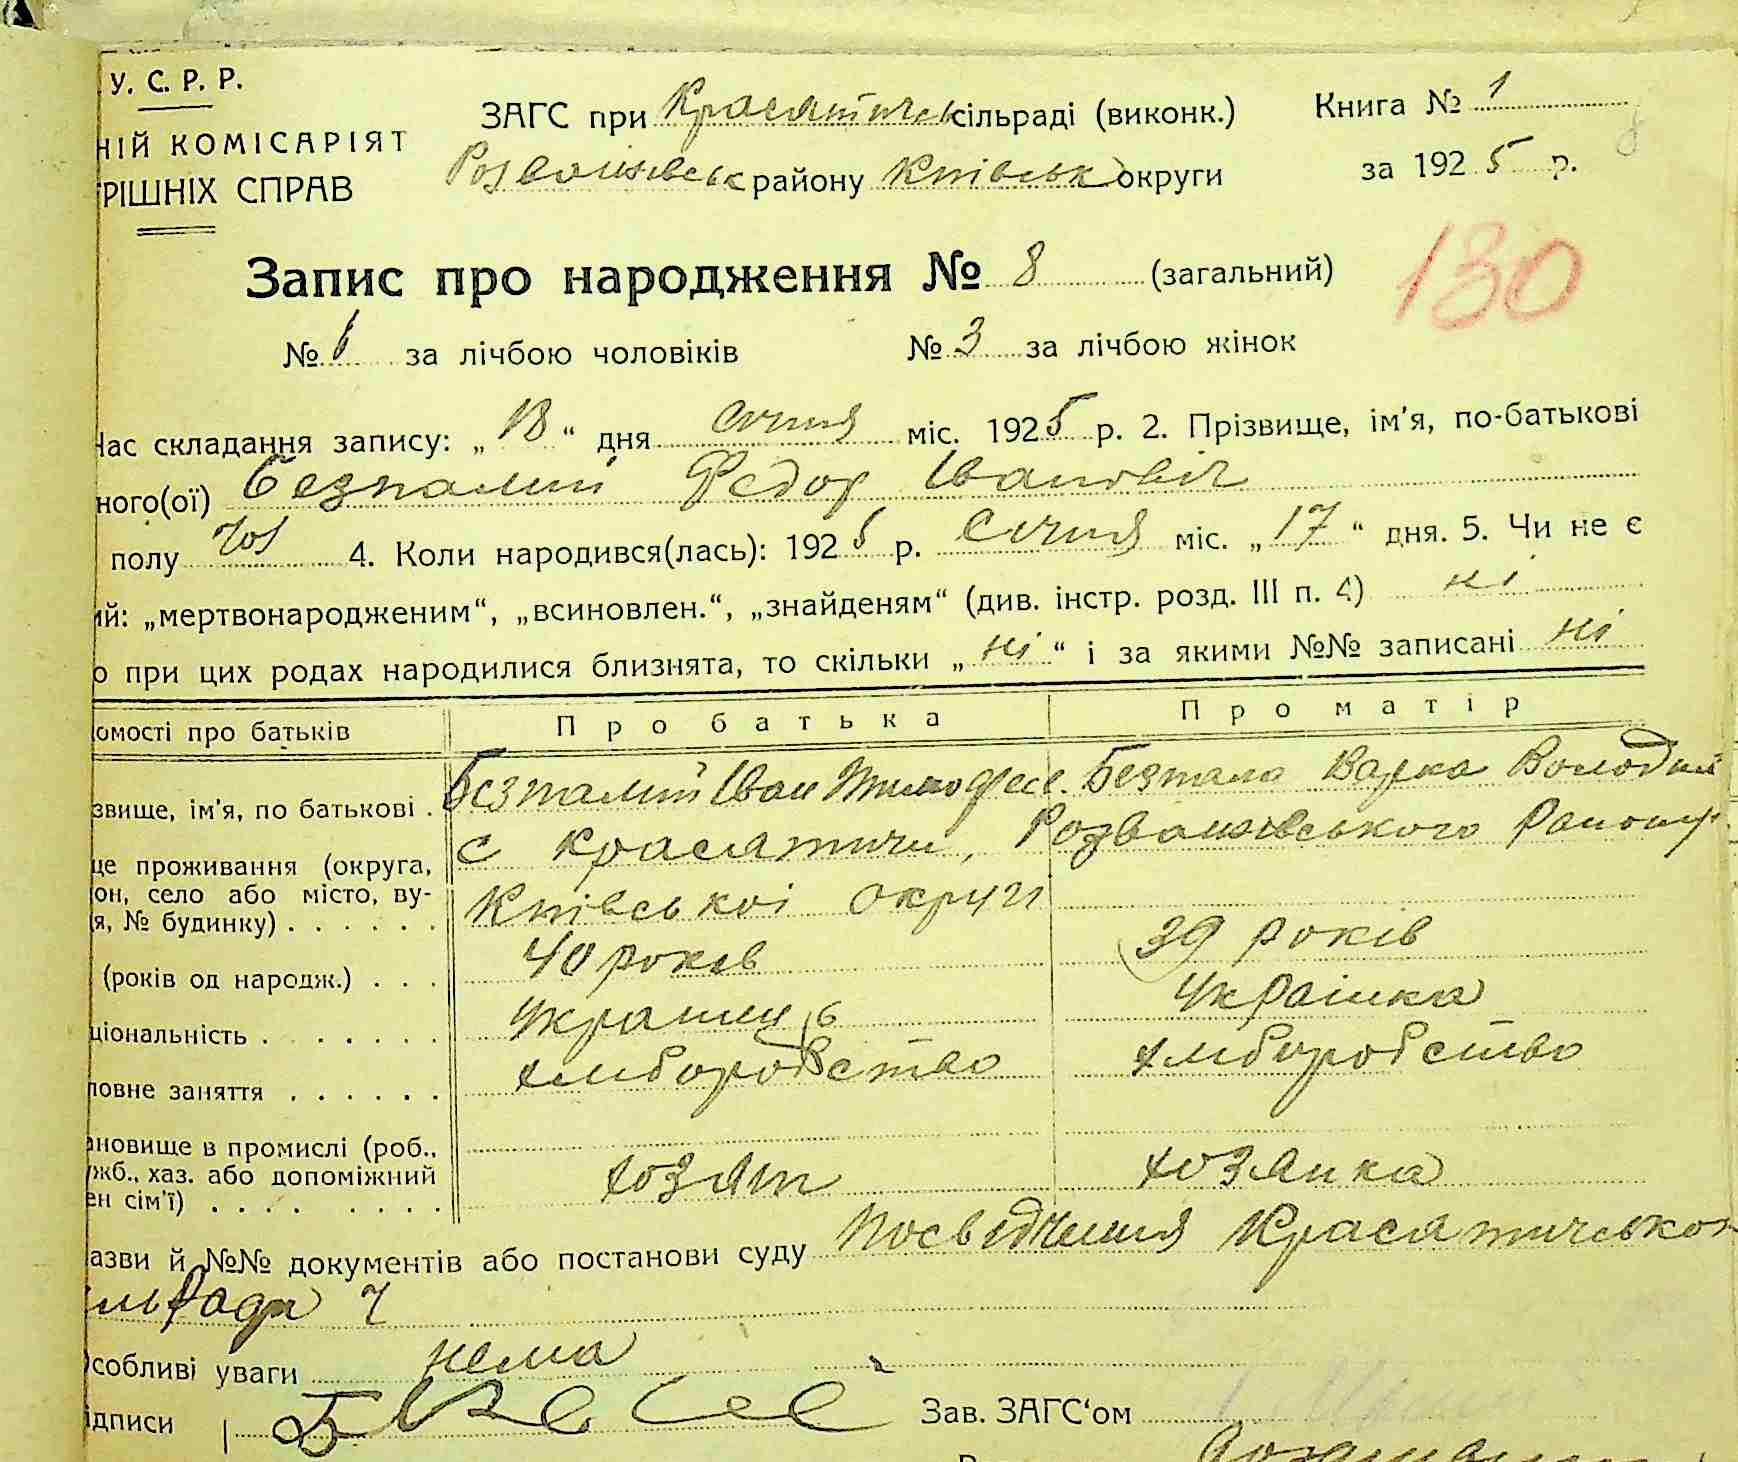 У. С. Р. Р.
НІЙ КОМІСАРІЯТ
РІШНІХ СПРАВ
ЗАГС при Красятичськ сільраді (виконк.)
Розважівськ району Київськ округи
Книга № 1
за 1925 р.
8
Запис про народження № 8 (загальний)
130
№ за лічбою чоловіків № 3 за лічбою жінок
Час складання запису: „18“ дня Січня міс. 1925 р. 2. Прізвище, ім'я, по-батькові
ного(ої) Безпалий Федор Іванович
полу чол 4. Коли народився(лась): 1925 р. Січня міс. „17“ дня. 5. Чи не є
ий: „мертвонародженим“, „всиновлен.“, „знайденям“ (див. інстр. розд. III п. 4) ні
о при цих родах народилися близнята, то скільки „ні“ і за якими №№ записані ні
омості про батьків Про батька Про матір
звище, ім'я, по батькові . Безпалий Іван Тимофеев. Безпала Варка Володим
це проживання (округа, с Красятичи, Розважівського Району
он, село або місто, ву-
я, № будинку) . . . . . . Київської округи
(років од народж.) . . . 40 років 39 років
ціональність . . . . . . . Українець Українка
ловне заняття . . . . . . хліборобство хліборобство
ановище в промислі (роб.,
жб., хаз. або допоміжний
ен сім'ї) . . . . . . . . хозяїн хозяйка
азви й №№ документів або постанови суду Посвідчення Красятичської
Ради
Особливі уваги нема
ідписи
Зав. ЗАГС'ом